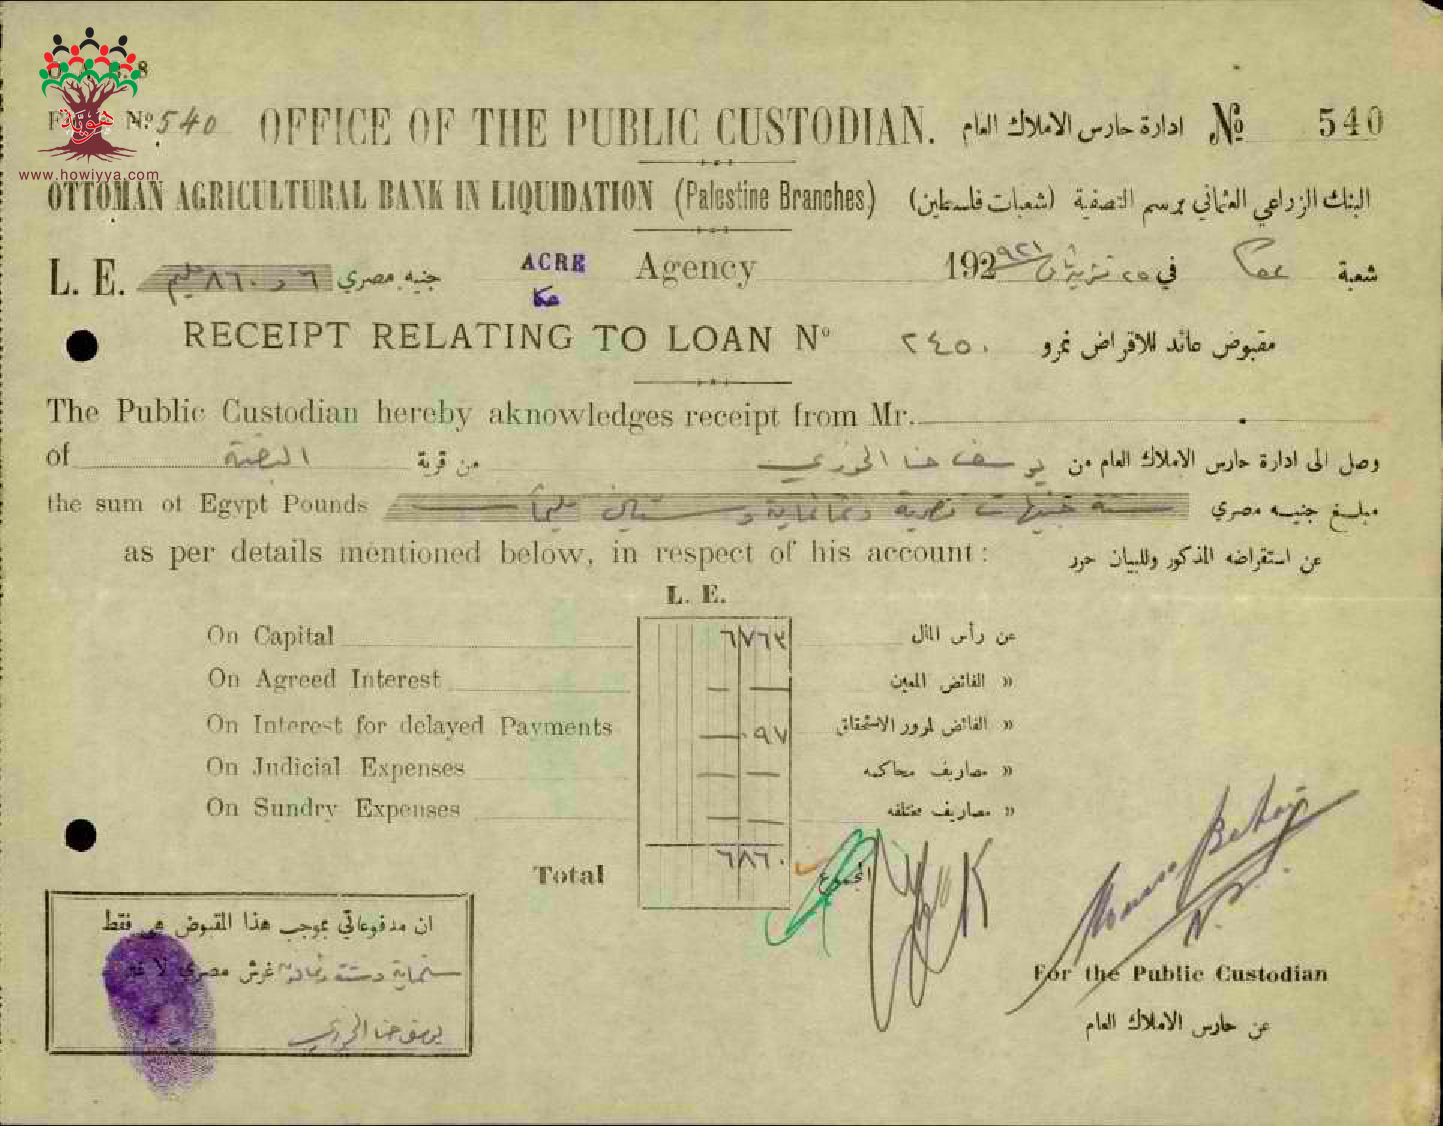 هوية
www.howiyya.com
Nº 540 OFFICE OF THE PUBLIC CUSTODIAN. ادارة حارس الاملاك العام Nº 540
OTTOMAN AGRICULTURAL BANK IN LIQUIDATION (Palestine Branches) البنك الزراعي العثماني برسم التصفية (شعبات فلسطين)
L. E. ٦ و ٨٦٠ مليم جنيه مصري ACRE Agency 192 ٩٢١ ٢٥ تشرين في عكا شعبة
عكا
RECEIPT RELATING TO LOAN Nº ٢٤٥٠ مقبوض عائد للاقراض نمرو
The Public Custodian hereby aknowledges receipt from Mr.
of البصة من قرية يوسف حنا الخوري وصل الى ادارة حارس الاملاك العام من
the sum of Egypt Pounds ستة جنيهات مصرية وثمانماية وستين مليماً مبلغ جنيه مصري
as per details mentioned below, in respect of his account : عن استقراضه المذكور وللبيان حرر
L. E.
On Capital ٦ ٧٦٣ عن رأس المال
On Agreed Interest — — » الفائض المعين
On Interest for delayed Payments — ٠٩٧ » الفائض لمرور الاستحقاق
On Judicial Expenses — — » مصاريف محاكمه
On Sundry Expenses — — » مصاريف مختلفه
Total ٦ ٨٦٠ المجموع
ان مدفوعاتي بموجب هذا المقبوض هي فقط
ستماية وستة وثمانون غرش مصري لا غير
يوسف حنا الخوري
For the Public Custodian
عن حارس الاملاك العام